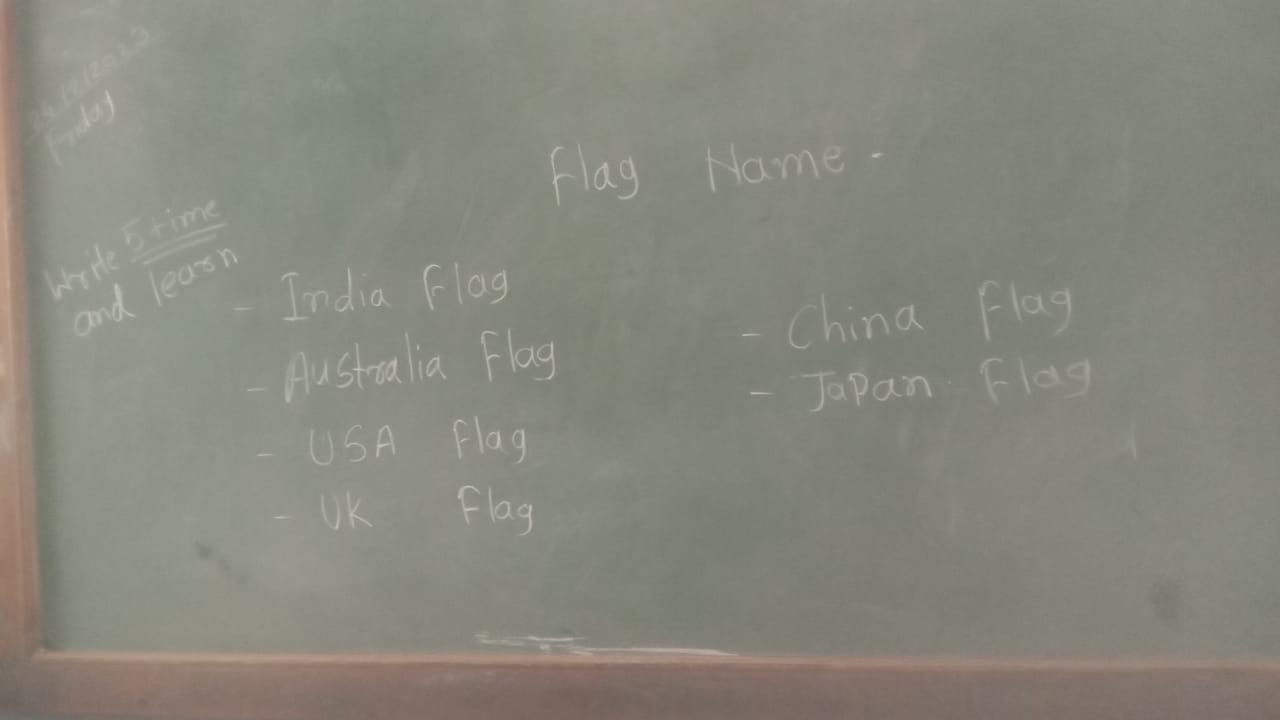 Friday
Flag Name.
Write 5 time
and learn
- India Flag
- Australia Flag
- USA Flag
- UK Flag
- China Flag
- Japan Flag